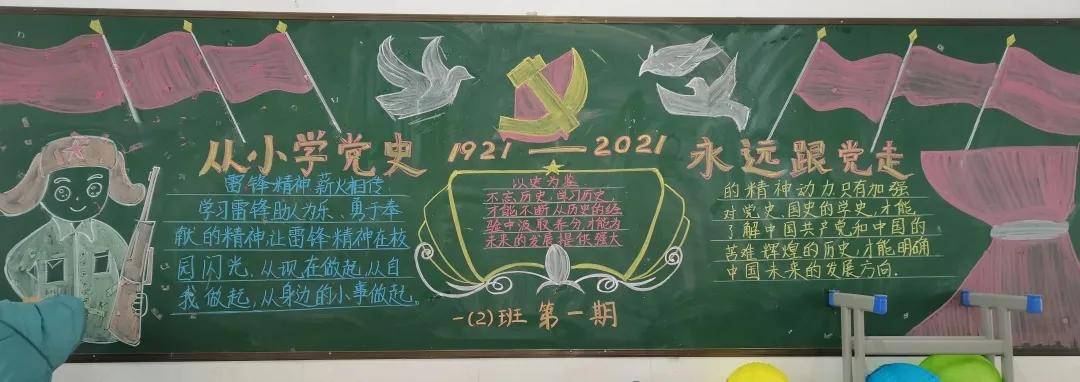 从小学党史 1921—2021 永远跟党走
雷锋精神 薪火相传
学习雷锋助人为乐、勇于奉
献的精神让雷锋精神在校
园闪光，从现在做起，从自
我做起，从身边的小事做起。
以史为鉴
不忘历史，学习历史，
才能不断从历史的经
验中汲取养分，才能为
未来的发展提供强大
的精神动力只有加强
对党史、国史的学史，才能
了解中国共产党和中国的
苦难辉煌的历史，才能明确
中国未来的发展方向.
一(2)班 第一期